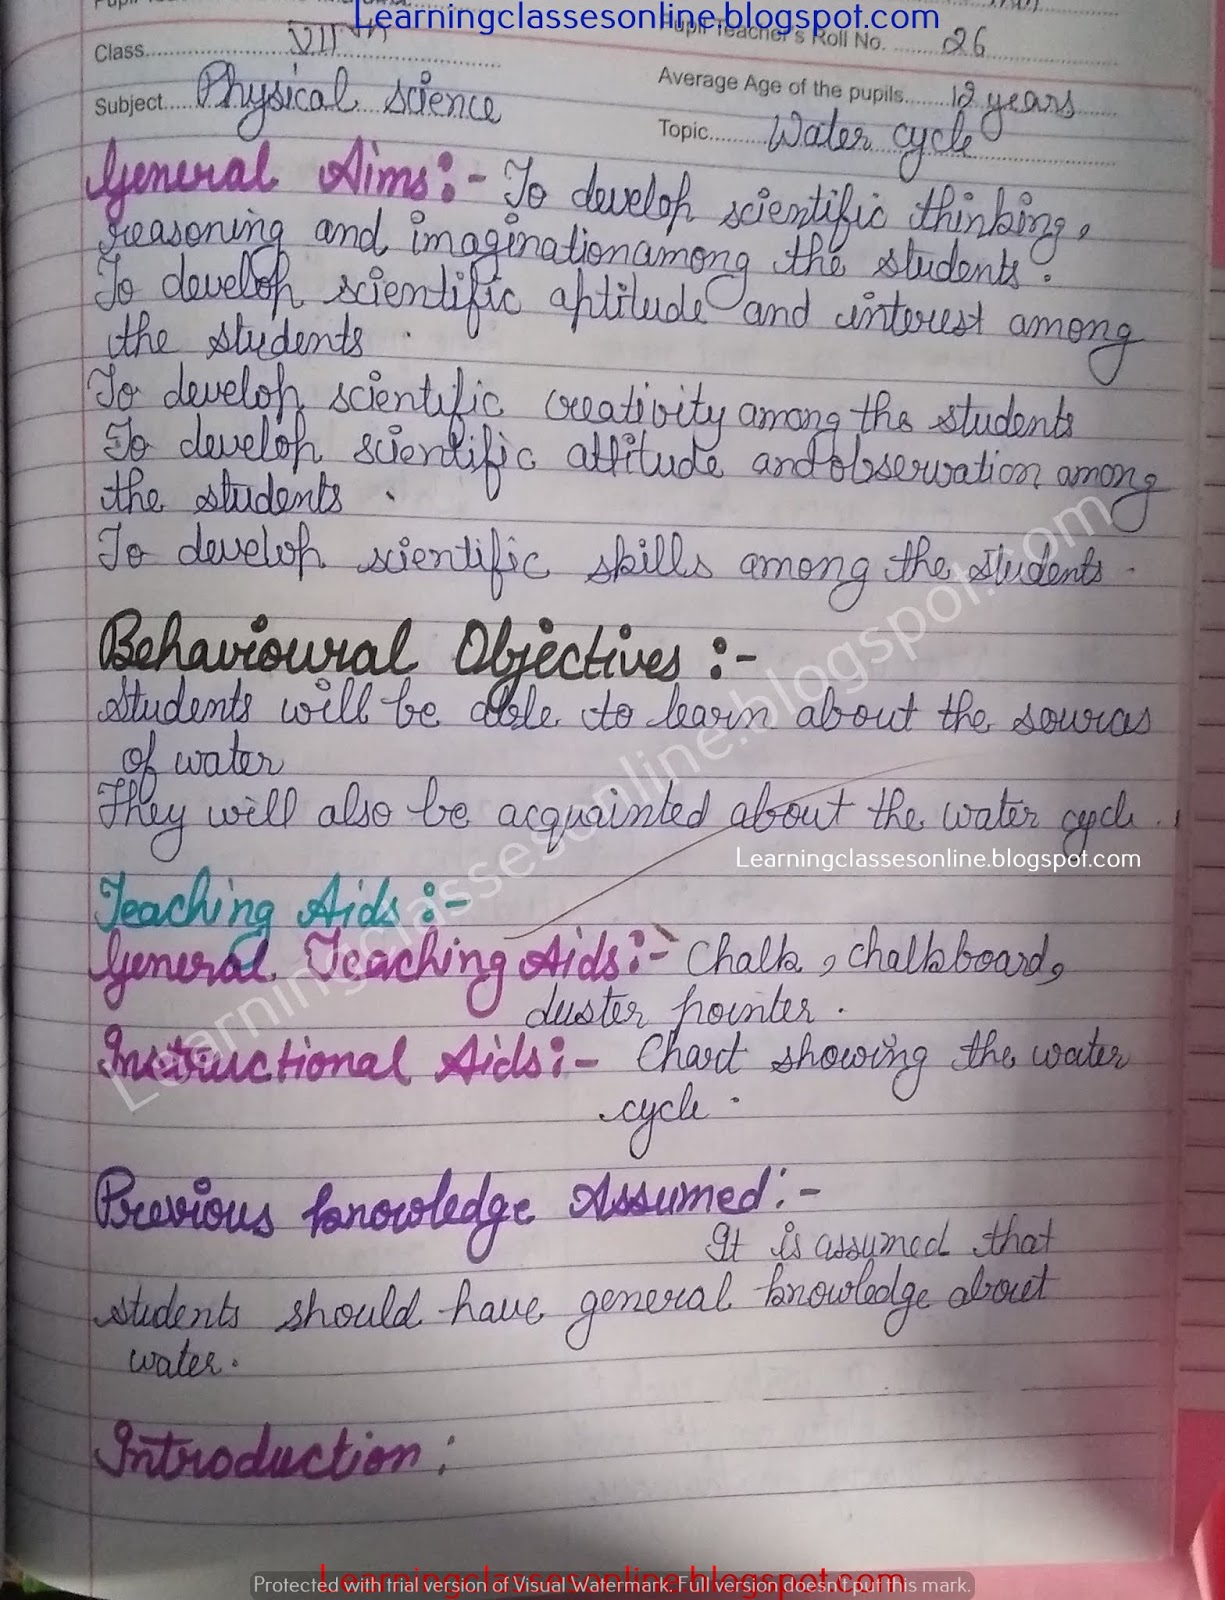 Learningclassesonline.blogspot.com
Class VIIth
Pupil Teacher's Roll No. 26
Subject Physical science
Average Age of the pupils 12 years
Topic Water cycle
General Aims:- To develop scientific thinking,
reasoning and imagination among the students.
To develop scientific aptitude and interest among
the students.
To develop scientific creativity among the students
To develop scientific attitude and observation among
the students.
To develop scientific skills among the students.
Behavioural Objectives :-
Students will be able to learn about the sources
of water
They will also be acquainted about the water cycle.
Learningclassesonline.blogspot.com
Teaching Aids :-
General Teaching Aids:- Chalk, chalkboard,
duster pointer.
Instructional Aids:- Chart showing the water
cycle.
Learningclassesonline.blogspot.com
Previous knowledge Assumed:-
It is assumed that
students should have general knowledge about
water.
Introduction:
Learningclassesonline.blogspot.com
Protected with trial version of Visual Watermark. Full version doesn't put this mark.